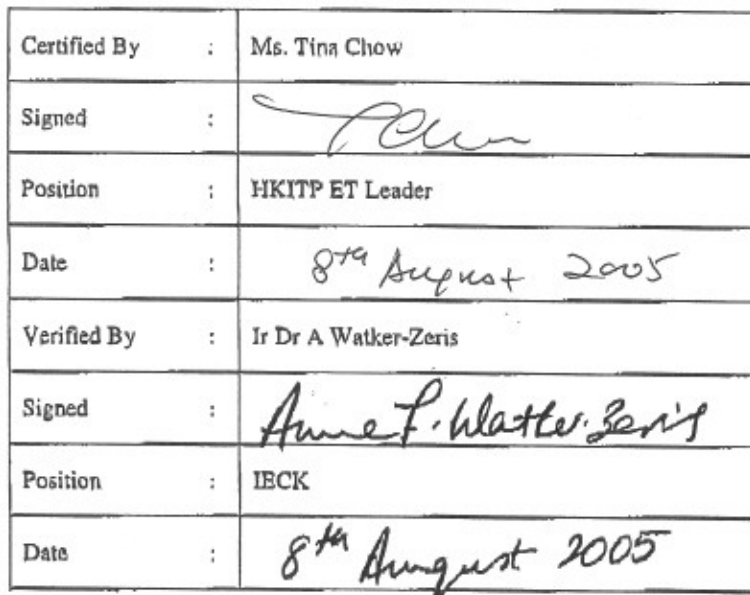 Certified By : Ms. Tina Chow
Signed : TChow
Position : HKITP ET Leader
Date : 8th August 2005
Verified By : Ir Dr A Watker-Zeris
Signed : Anne F. Watker-Zeris
Position : IECK
Date : 8th August 2005